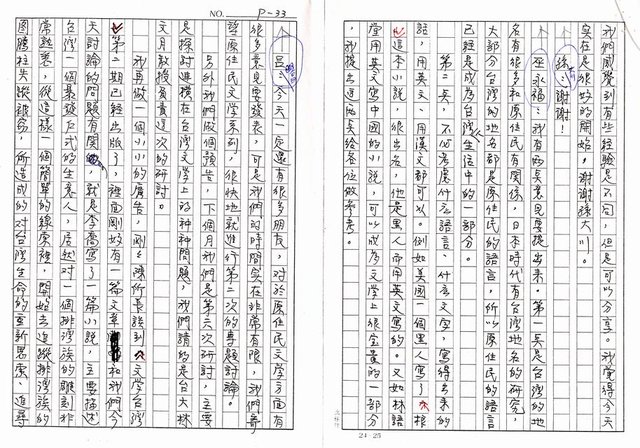 我們感覺到有些經驗是不同，但是可以分享。我覺得今天
實在是很好的開始。謝謝孫大川。
孫：謝謝！
巫永福：我有兩點意見要提出來。第一點是台灣的地
名有很多和原住民有關係，日本時代有台灣地名的研究，
大部分台灣的地名都是原住民的語言，所以原住民的語言
已經是成為台灣人生活中的一部分。
第二點，不必考慮什麼語言、什麼文字，寫得出來的
話，用英文、用漢文都可以。例如美國一個黑人寫了「根
」這本小說，很出名，他是黑人而用英文寫的。又如林語
堂用英文寫中國的小說，可以成為文學上很重要的一部分
，我提出這兩點給各位做參考。
24 25
NO. P-33
呂：今天一定還有很多朋友，對於原住民文學方面有
很多意見要發表，可是我們的時間實在非常有限，我們希
望原住民文學系列，很快地就進行第二次的專題討論。
另外我們做個預告，下個月我們是第六次研討，主要
是探討在台灣文學上的種種問題，我們請的是台大林
文月教授負責這次的研討。
我再做一個小小的廣告，剛才陳所長談到「文學台灣
」第二期已經出版了，裡面剛好有一篇文章和我們今
天討論的問題有關，就是李喬寫了一篇小說，主要描述
台灣一個暴發戶式的生意人，居然對一個排灣族的雕刻非
常熟悉，從這樣一個簡單的線索裡，開始去追蹤排灣族的
圖騰柱失蹤報告，所造成的對台灣生命的重新思索、追尋